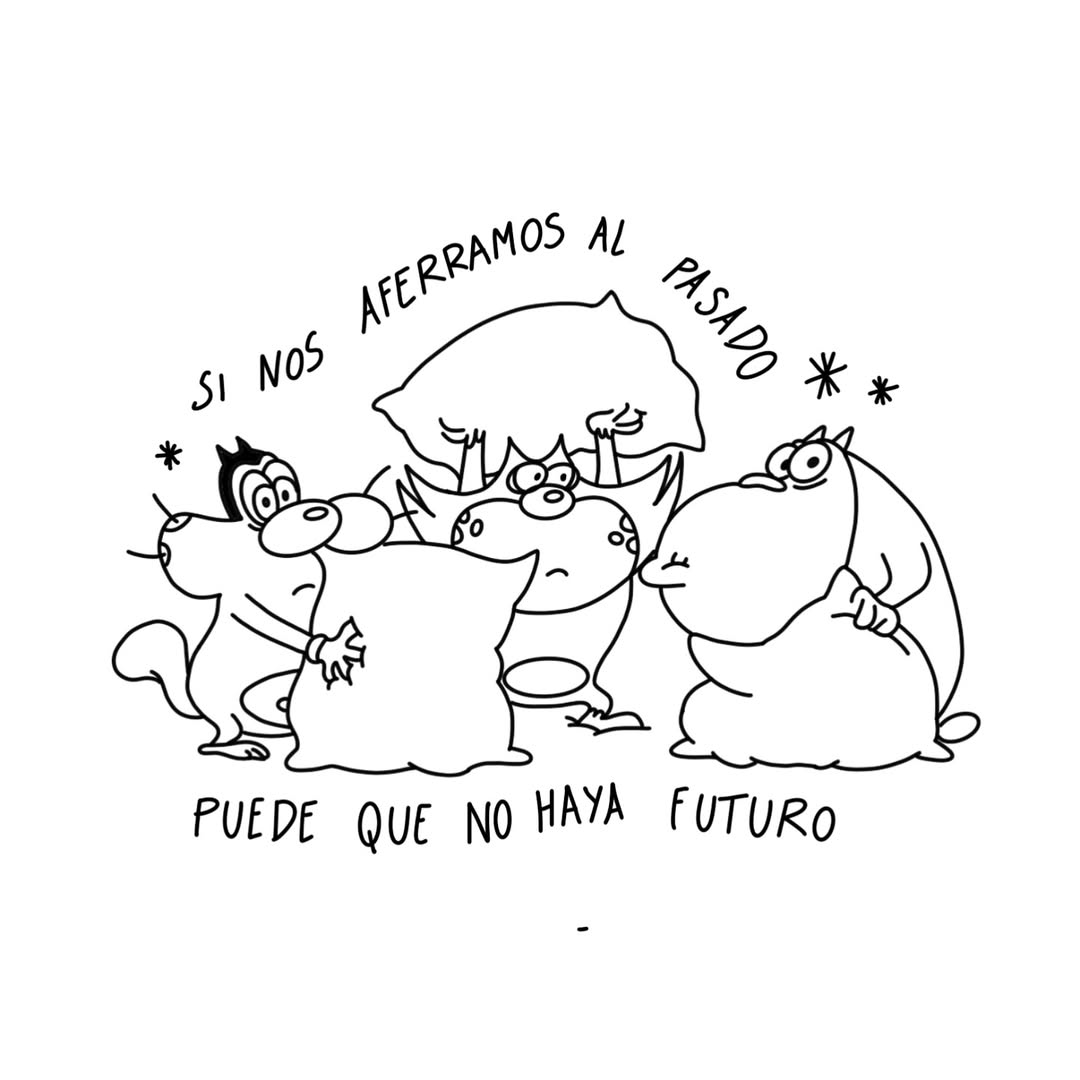 SI NOS AFERRAMOS AL PASADO
PUEDE QUE NO HAYA FUTURO